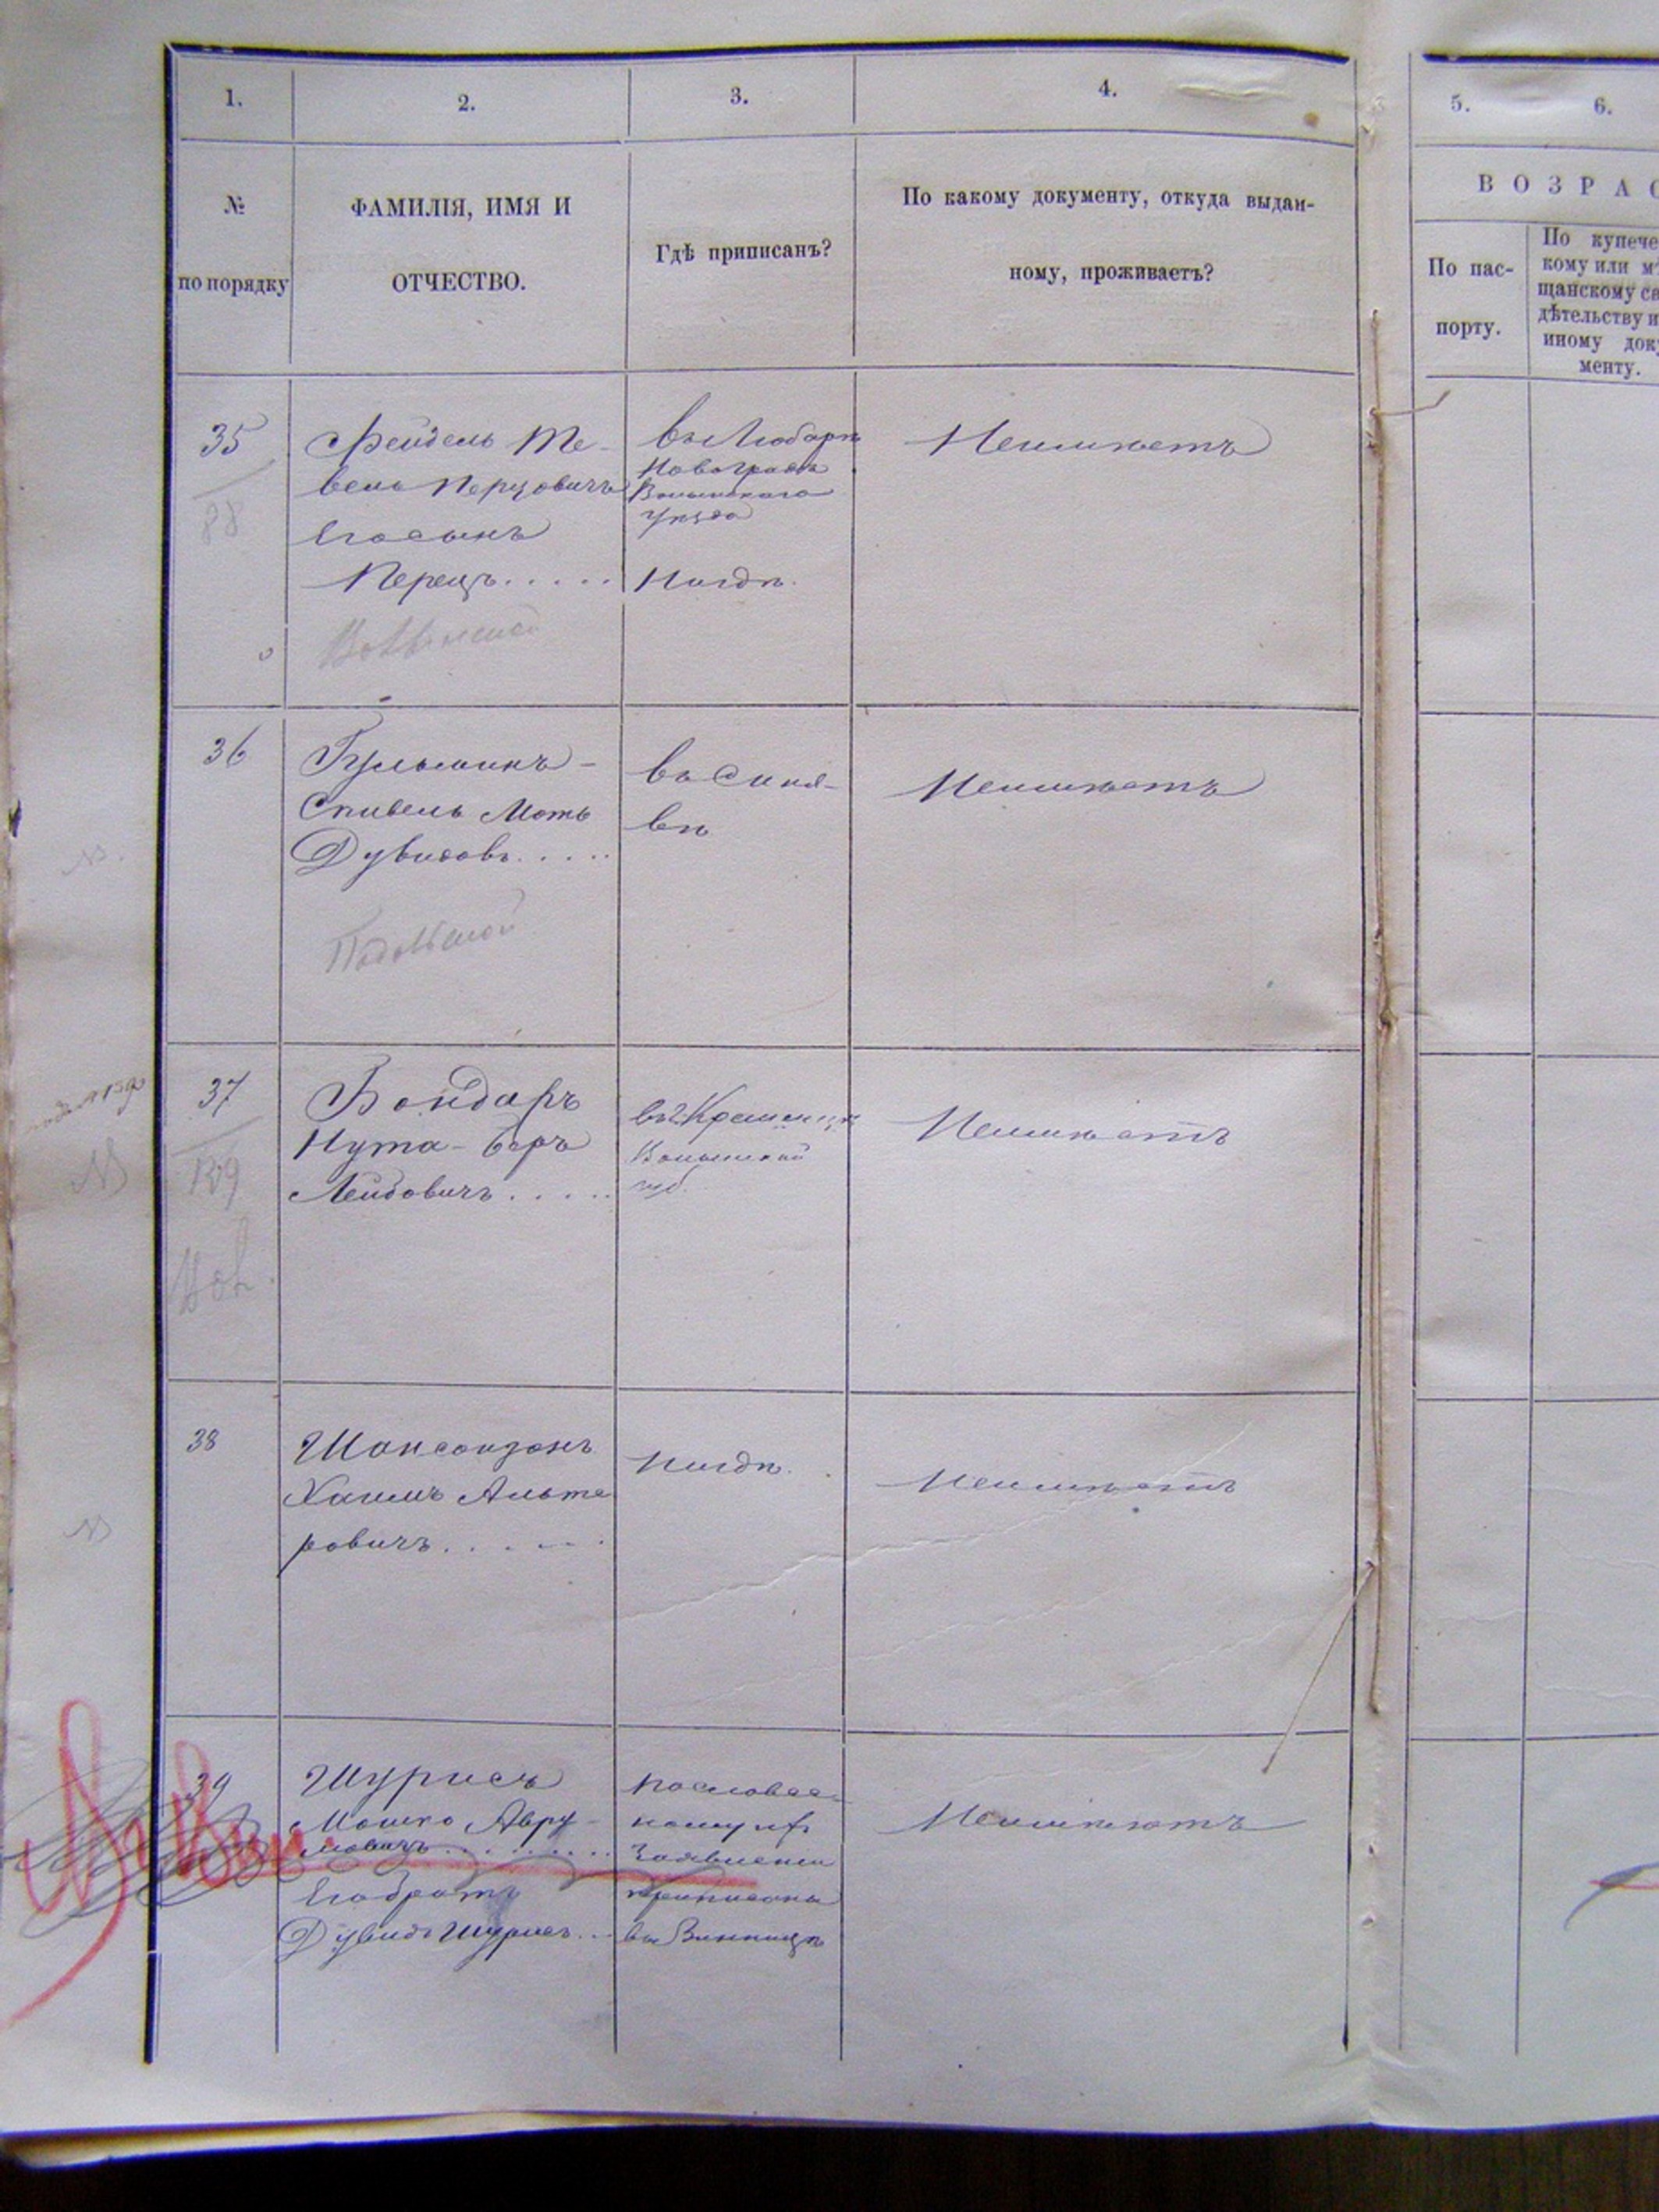 1.
2.
3.
4.
5.
6.
№
по порядку
ФАМИЛІЯ, ИМЯ И
ОТЧЕСТВО.
Гдѣ приписанъ?
По какому документу, откуда выдан-
ному, проживаетъ?
ВОЗРАС
По пас-
порту.
По купече
кому или мѣ
щанскому св
дѣтельству и
иному доку
менту.
35
88
Фейдель Те-
вель Перцовичъ
Его сынъ
Перецъ.....
въ Любарѣ
Новоградъ
Волынскаго
уѣзда
Нигдѣ.
Неимѣетъ
36
Спивель Моть
Дувидовъ.....
Подольской
въ Синя-
вѣ
Неимѣетъ
37
139
Бондаръ
Нута-Беръ
Лейбовичъ.....
въ г. Кременцѣ
Волынской
губ.
Неимѣетъ
38
Шансонзонъ
Хаимъ Альте
ровичъ.....
Нигдѣ.
Неимѣетъ
39
Шурисъ
Мошко Авру-
мовичъ.........
Его братъ
Дувидъ Шурисъ...
по словес-
ному ихъ
заявленію
приписаны
въ Винницѣ
Неимѣютъ